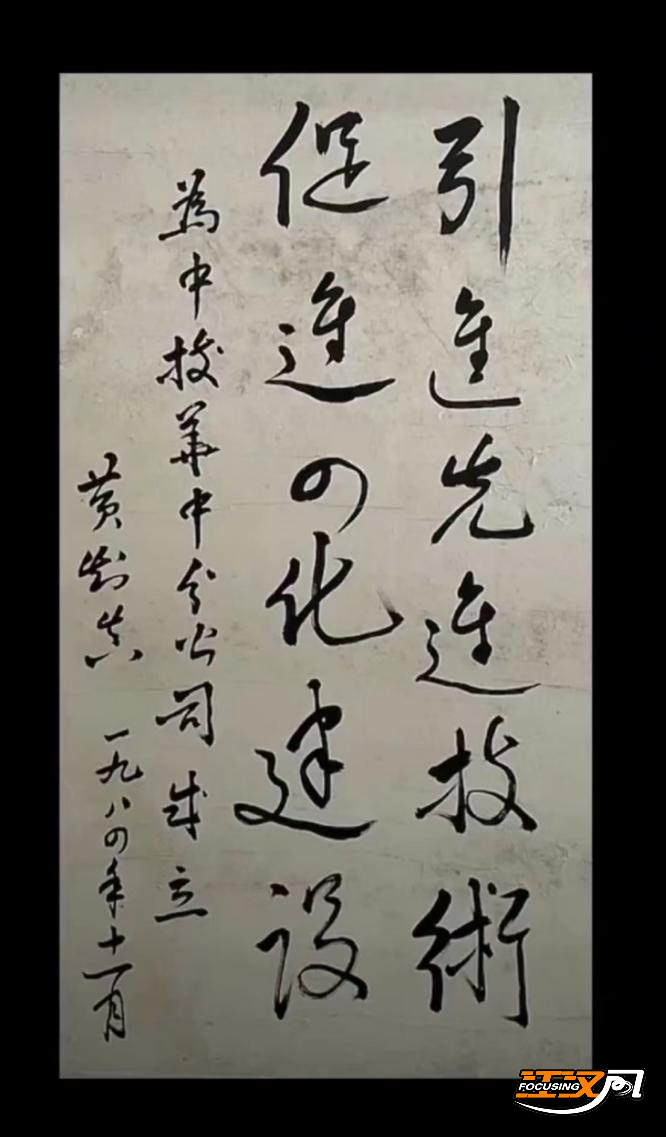 引進先進技術
促進四化建設
為中技華中分公司成立
黄知真 一九八四年十一月
江汉风
FOCUSING